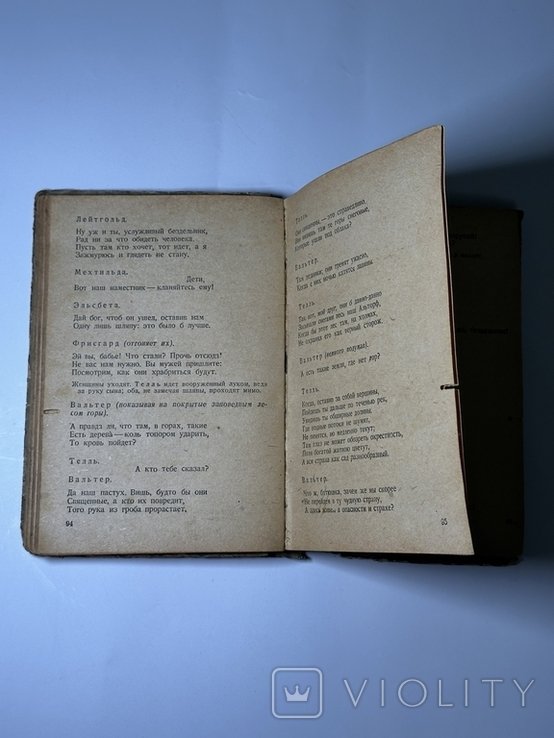 Лейтгольд.
Ну уж и ты, услужливый бездельник,
Рад ни за что обидеть человека.
Пусть там кто хочет, тот идет, а я
Зажмурюсь и глядеть не стану.
Мехтильда.
Дети,
Вот наш наместник—кланяйтесь ему!
Эльсбета.
Дай бог, чтоб он ушел, оставив нам
Одну лишь шляпу: это было б лучше.
Фрисгард (отгоняет их).
Эй вы, бабье! Что стали? Прочь отсюда!
Не вас нам нужно. Вы мужей пришлите:
Посмотрим, как они храбриться будут.
Женщины уходят. Телль идет вооруженный луком, ведя
за руку сына; оба, не замечая шляпы, проходят мимо.
Вальтер (показывая на покрытые заповедным ле-
сом горы).
А правда ли, что там, в горах, такие
Есть дерева—коль топором ударить,
То кровь пойдет?
Телль.
А кто тебе сказал?
Вальтер.
Да наш пастух. Вишь, будто бы они
Священные, а кто их повредит,
Того рука из гроба прорастает,
94
Телль.
Они священны, — это справедливо.
Ты видишь там те горы снеговые,
Которые ушли под облака?
Вальтер.
Там ледники; они гремят ужасно,
Когда с них ночью катятся лавины.
Телль.
Так, вот, мой друг, они б давно-давно
Засыпали снегами весь наш Альторф,
Когда бы этот лес там, на холмах,
Не охранял его как верный сторож.
Вальтер (немного подумав).
А есть такие земли, где нет гор?
Телль.
Когда, оставив за собой вершины,
Пойдешь ты дальше по теченью рек,
Увидишь ты обширные долины,
Где водные потоки не шумят,
Не пенятся, но медленно текут;
Там глаз не может обозреть окрестность,
Поля богатой жатвою цветут,
А вся страна как сад разнообразный.
Вальтер.
Что ж, батюшка, зачем же мы скорее
Не перейдем в ту чудную страну,
А здесь живем в опасности и страхе?
95
VIOLITY